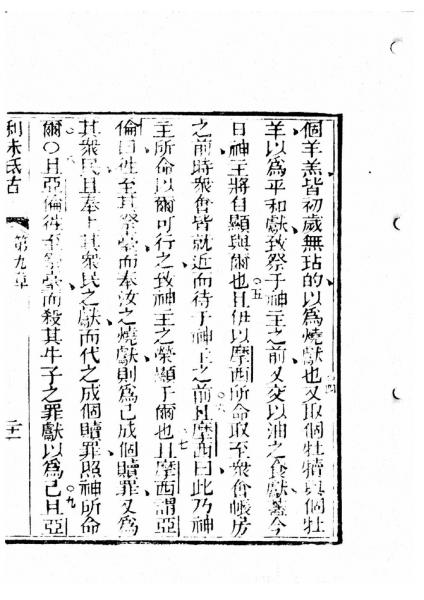 個羊羔皆初歲無玷的以為燒獻也又取個牡犢與個牡
羊以為平和獻致祭于神主之前又交以油之食獻蓋今
日神主將自顯與爾也且伊以摩西所命取至衆會帳房
之前時衆會皆就近而待于神主之前且摩西曰此乃神
主所命以爾可行之致神主之榮顯于爾也且摩西謂亞
倫曰徃至其祭臺而奉汝之燒獻則為己成個贖罪又為
其衆民且奉上其衆民之獻而代之成個贖罪照神所命
爾○且亞倫徃至祭臺而殺其牛子之罪獻以為己且亞
利未氏古 第九章 二十一
四
五
六
七
八
九